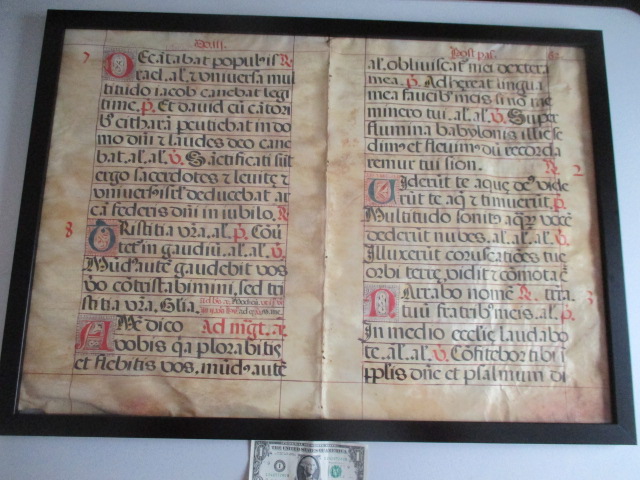 Do. iij.
7
Decātabat popul⁹ is R
rael. al. ⁊ vniuersa mul
titudo iacob canebat legi
time. p. Et dauid cū cātori
b⁹ cithara
mo dnī ⁊ laudes deo cane
bat. al. al. V. Sāctificati sūt
ergo sacerdotes ⁊ leuite ⁊
ca federis dnī in iubilo. R
8
Tristitia vra. al. p. Cōu
tet in gaudiū. al. al. V.
Mūd⁹ autē gaudebit vos
vō cōtristabimini, sed tri
stitia vra. Glia.
Amē dico Ad mgt. a
vobis q̄a plorabitis
et flebitis vos, mūd⁹ autē
Post pas. 
al. obliuiscat⁹ mei dextera
mea. p. Adhereat lingua
mea faucib⁹ meis si nō me
minero tui. al. al. V. Super
flumina babylonis illic se
dim⁹ et fleuim⁹ dū recorda
remur tui sion. R. 2
Viderūt te aque de⁹ vide
rūt te aq̄ ⁊ timuerūt. p.
Multitudo sonit⁹ aq̄ꝝ vocē
dederūt nubes. al. al. V.
Illuxerūt coruscatiões tue
orbi terre, vidit ⁊ cōmota ē
Narrabo nomē R. trā. 3
tuū fratrib⁹ meis. al. p.
In medio ecclīe laudabo
te. al. al. V. Cōfitebor tibi ī
pplis dn̄e et psalmum di
THE UNITED STATES OF AMERICA
1